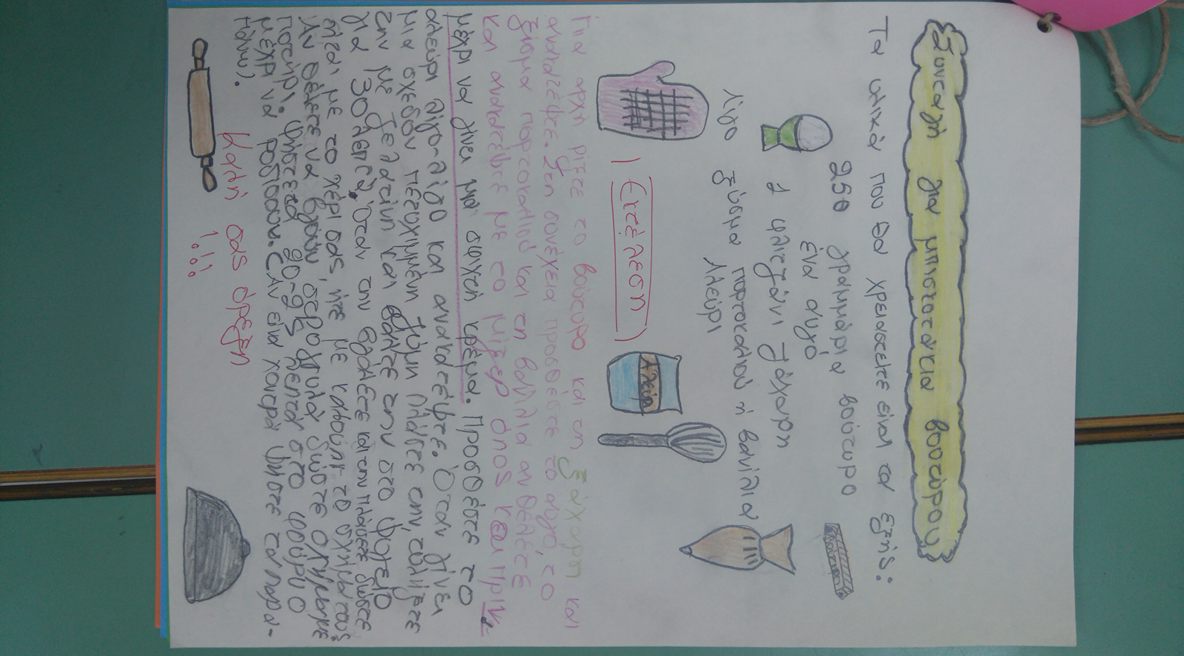 Συνταγή για μπισκοτάκια βουτύρου
Τα υλικά που θα χρειαστείτε είναι τα εξής:
250 γραμμάρια βούτυρο
ένα αυγό
1 φλιτζάνι ζάχαρη
λίγο ξύσμα πορτοκαλιού ή βανίλια
Αλεύρι
Εκτέλεση
Αλεύρι
Για αρχή ρίξτε το βούτυρο και τη ζάχαρη και
ανακατέψτε. Στη συνέχεια προσθέστε το αυγό, το
ξύσμα πορτοκαλιού και τη βανίλια αν θέλετε
και ανακατέψτε με το μίξερ όπως και πριν
μέχρι να γίνει μια σφιχτή κρέμα. Προσθέστε το
αλεύρι λίγο-λίγο και ανακατέψτε. Όταν γίνει
μια σχεδόν πετυχημένη ζύμη πλάστε την, τυλίξτε
την με ζελατίνη και βάλτε την στο ψυγείο
για 30 λεπτά. Όταν την βγάλετε και την πλάσετε δώστε
είτε με το χέρι σας, είτε με καλούπι το σχήμα τους
Αν θέλετε να βγουν στρογγυλά δώστε σχήμα με
ποτήρι. Ψήστε τα 20-25 λεπτά στο φούρνο
μέχρι να ροδίσουν. (Αν είναι χοντρά ψήστε τα παρα-
πάνω).
Καλή σας όρεξη
!!!